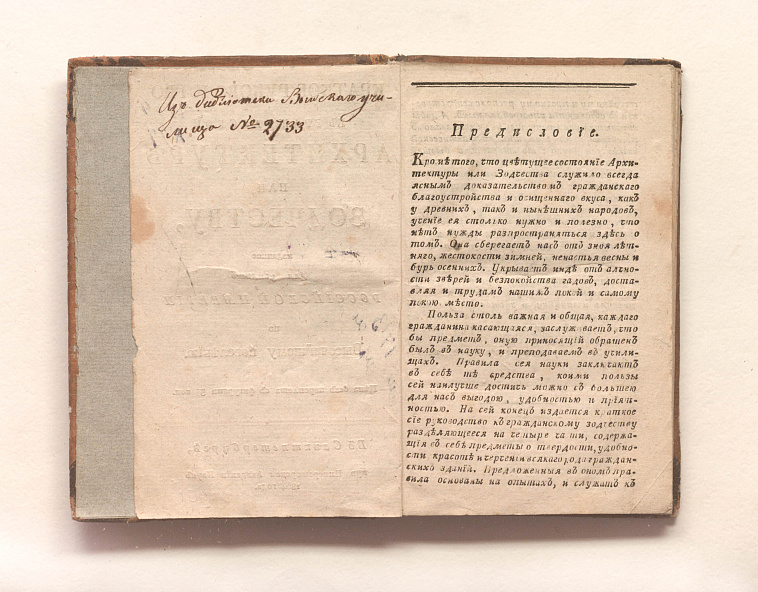 Изъ библіотеки
лища № 2733
Предисловіе.
Кромѣ того, что цвѣтущее состояніе Архи-
тектуры или Зодчества служило всегда
яснымъ доказательствомъ гражданскаго
благоустройства и очищеннаго вкуса, какъ
у древнихъ, такъ и нынѣшнихъ народовъ,
ученіе ея столько нужно и полезно, что
нѣтъ нужды разпространяться здѣсь о
томъ. Она сберегаетъ насъ отъ зноя лѣт-
няго, жестокости зимней, ненастья весны и
бурь осеннихъ. Укрываетъ индѣ отъ алчно-
сти звѣрей и безпокойства гадовъ, доста-
вляя и трудамъ нашимъ покой и самому
покою мѣсто.
Польза столь важная и общая, каждаго
гражданина касающаяся, заслуживаетъ, что
бы предметъ, оную приносящій обращенъ
былъ въ науку, и преподаваемъ въ учили-
щахъ. Правила сея науки заключаютъ
въ себѣ тѣ средства, коими пользы
сей наилучше достичь можно съ большею
для насъ выгодою, удобностью и прїят-
ностью. На сей конецъ издается краткое
сїе руководство къ гражданскому зодчеству
раздѣляющееся на четыре части, содержа-
щїя въ себѣ предметы о твердости, удобно-
сти красотѣ и черченїи всякаго рода граждан-
скихъ зданїй. Предложенныя въ ономъ пра-
вила основаны на опытахъ, и служатъ къ